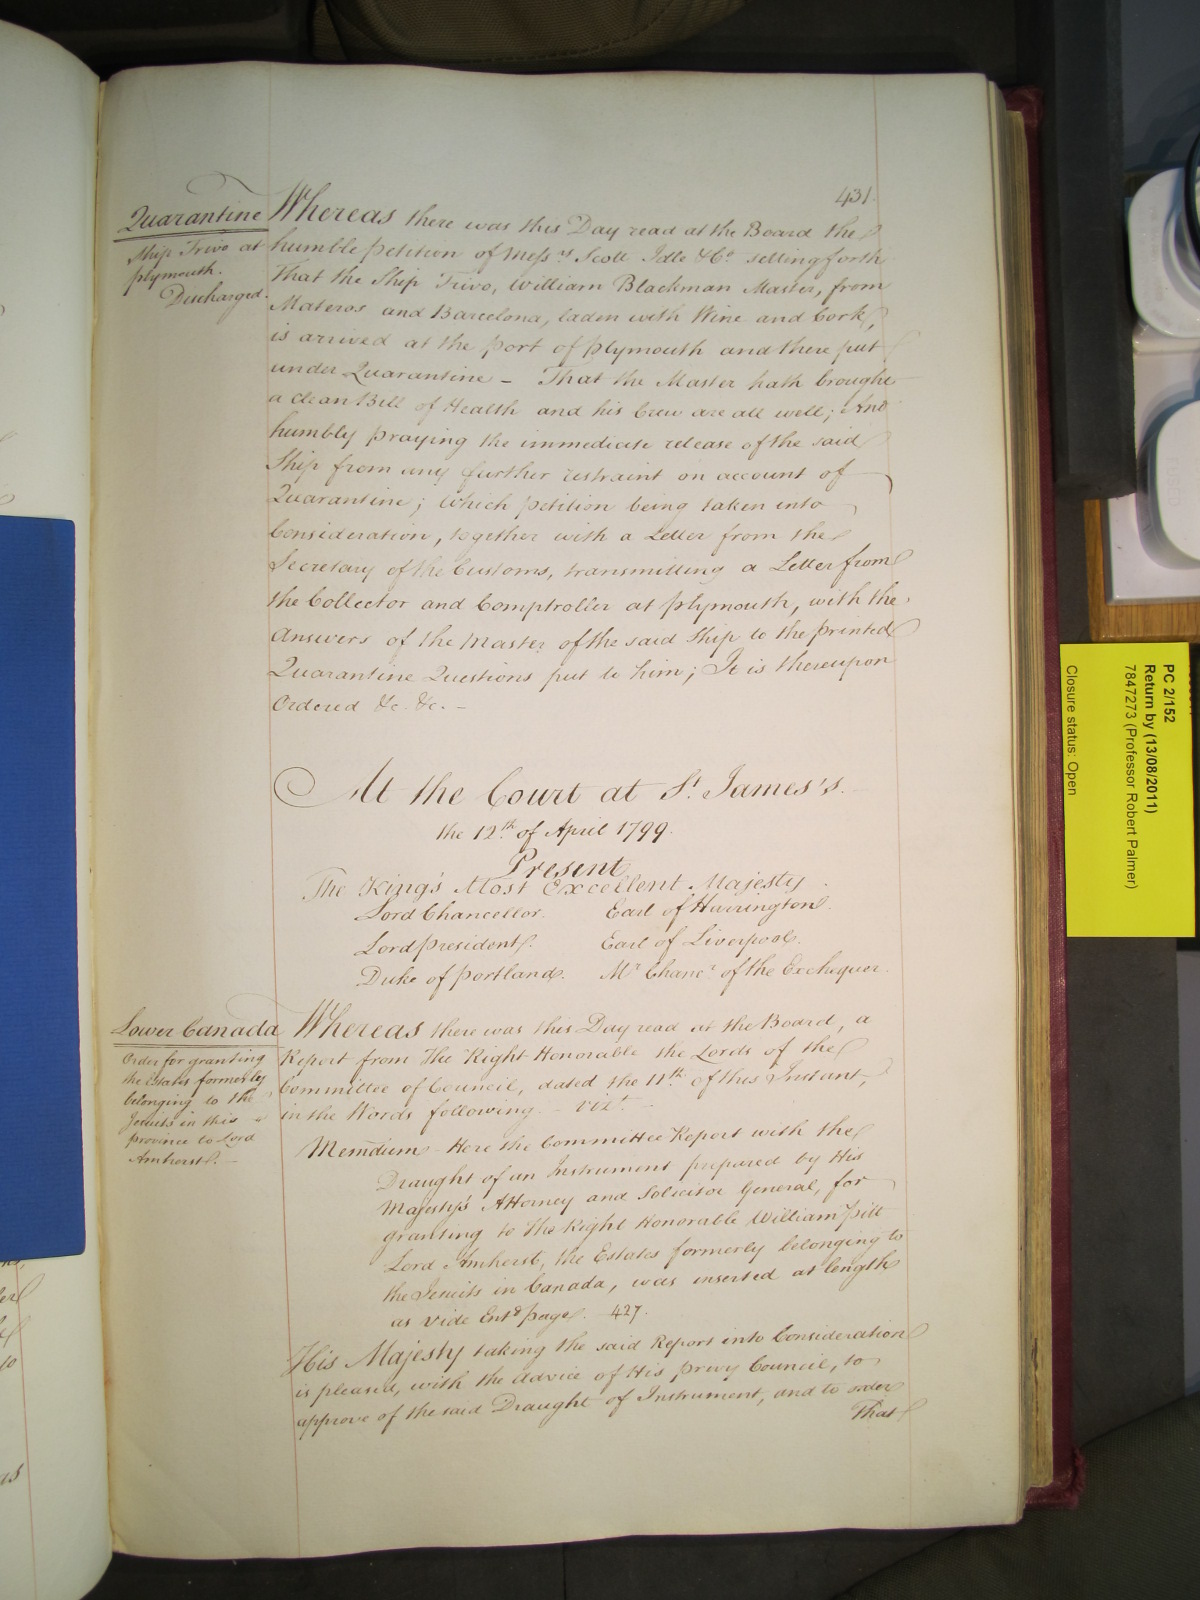 431.
Quarantine
Ship Trivo at
plymouth.
Discharged.
Whereas there was this Day read at the Board the
humble petition of Messrs Scott Idle & Co setting forth
That the Ship Trivo, William Blackman Master, from
Materos and Barcelona, laden with Wine and Cork,
is arrived at the port of plymouth and there put
under Quarantine - That the Master hath brought
a clean Bill of Health and his Crew are all well; And
humbly praying the immediate release of the said
Ship from any further restraint on account of
Quarantine; Which petition being taken into
Consideration, together with a Letter from the
Secretary of the Customs, transmitting a Letter from
the Collector and Comptroller at plymouth, with the
Answers of the Master of the said Ship to the printed
Quarantine Questions put to him; It is thereupon
Ordered &c. &c. -
At the Court at St. James's.
the 12th of April 1799.
Present
The King's Most Excellent Majesty.
Lord Chancellor. Earl of Harrington.
Lord president. Earl of Liverpool.
Duke of portland. Mr Chancr of the Exchequer.
Lower Canada
Order for granting
the Estates formerly
belonging to the
Jesuits in this
province to Lord
Amherst. -
Whereas there was this Day read at the Board, a
Report from The Right Honorable the Lords of the
Committee of Council, dated the 11th of this Instant,
in the Words following - vizt. -
Memdum - Here the Committee Report with the
Draught of an Instrument prepared by His
Majesty's Attorney and Solicitor General, for
granting to The Right Honorable William pitt
Lord Amherst, the Estates formerly belonging to
the Jesuits in Canada, was inserted at length
as vide Entd page 427.
His Majesty taking the said Report into Consideration
is pleased, with the Advice of His privy Council, to
approve of the said Draught of Instrument, and to order
That
PC 2/152
Return by (13/08/2011)
7847273 (Professor Robert Palmer)
Closure status: Open